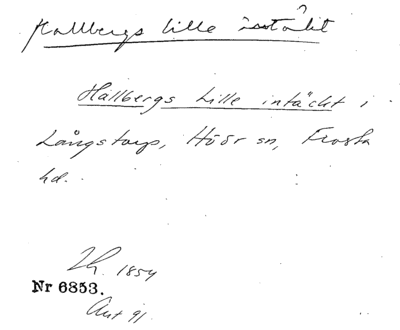 Hallbergs Lille intäkt
Hallbergs Lille intäckt i
Långstorp, Höör sn, Frosta
hd.
1854
Nr 6853.
91